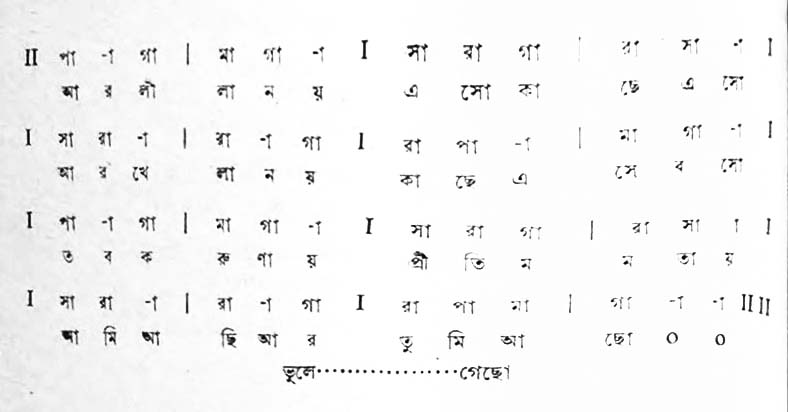 II পা -া গা | মা গা -া I সা রা গা | রা সা -া I
আ র লী লা ন য় এ সো কা ছে এ সো
I সা রা -া | রা -া গা I রা পা -া | মা গা -া I
আ র খে লা ন য় কা ছে এ সে ব সো
I পা -া গা | মা গা -া I সা রা গা | রা সা া I
ত ব ক রু ণা য় প্রী তি ম ম তা য়
I সা রা -া | রা -া গা I রা পা মা | গা -া -া II II
আ মি আ ছি আ র তু মি আ ছো ০ ০
ভুলে··················গেছো